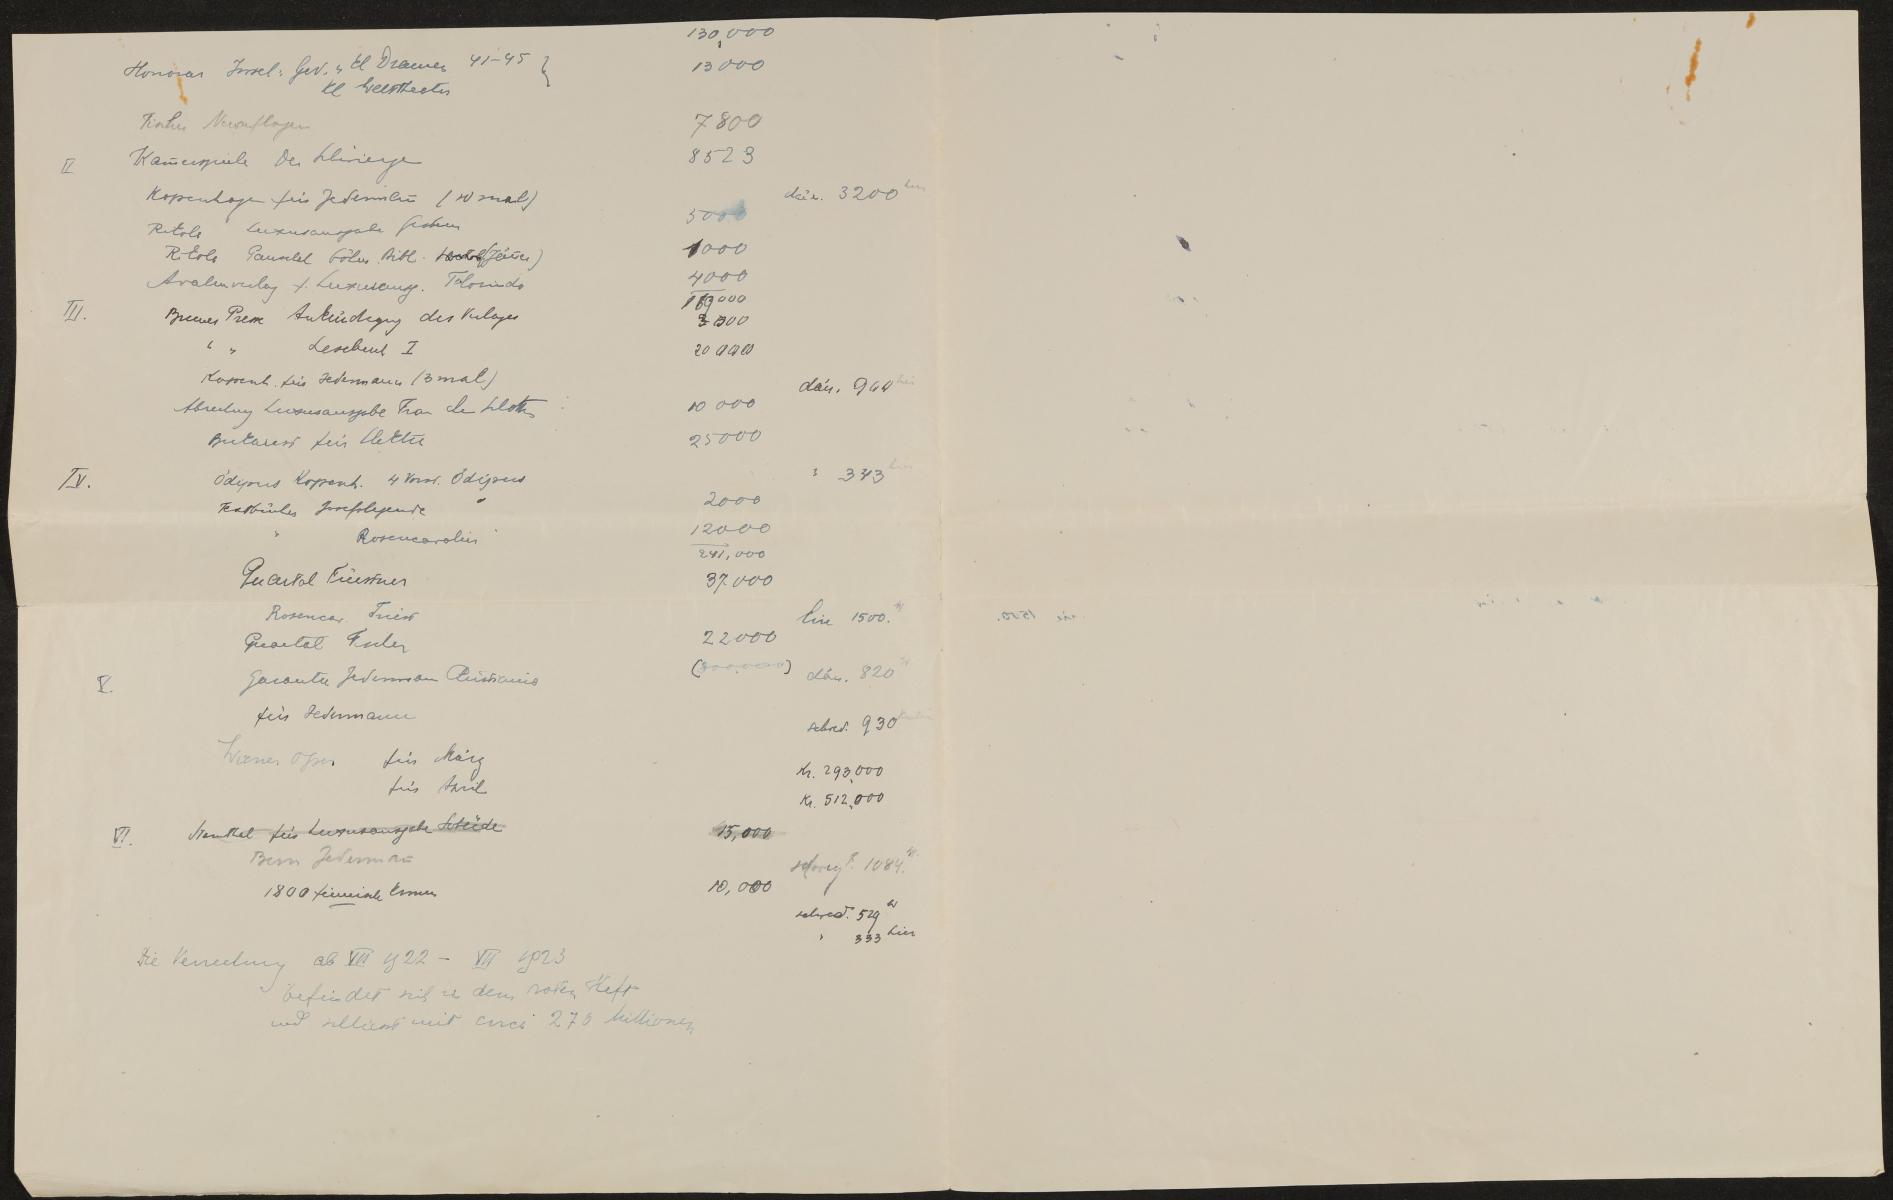 130,000
Honorar Insel: Ged. u Kl Dramen 41–45 } 13000
Kl Welttheater
Fischer Neuauflagen 7800
II Kam̄erspiele Der Schwierige 8523
Kopenhagen für Jederman̄ (10 mal) dän. 3200 hier
Rikola Luxusausgabe 5000
Rikola Pauschal Bibl. 1000
Avalunverlag f. Luxusausg. Florindo 4000
169000
III. Bremer Presse Ankündigung des Verlages 3000
" " Lesebuch I 20000
Kopenh. für Jedermann (3 mal) dän. 944 hier
Abrechng Luxusausgabe Frau ohne Schatten 10 000
Bukarest für Elektra 25000
IV. Ödipus Kopenh. 4 Vorst. Ödipus " 343 hier
Textbücher Josefslegende 2000
" Rosencavalier 12000
241,000
Quartal Fürstner 37.000
Rosencav. Triest Lire 1500. hr
Quartal Fischer 22000
(300.000)
V. Garantie Jedermann Christiania dän. 820 hr
für Jedermann schwed. 930
Wiener Oper für März Kr. 293,000
für April Kr. 512,000
VI. für Luxusausgabe 15,000
Bern Jederman̄ schweiz f. 1084. hr.
1800 finnische Kronen 10,000
schwed. 529 hr
" 333 hier
Die Verrechnung ab VII 1922 – VII 1923
befindet sich in dem roten Heft
und schliesst mit circa 273 Millionen